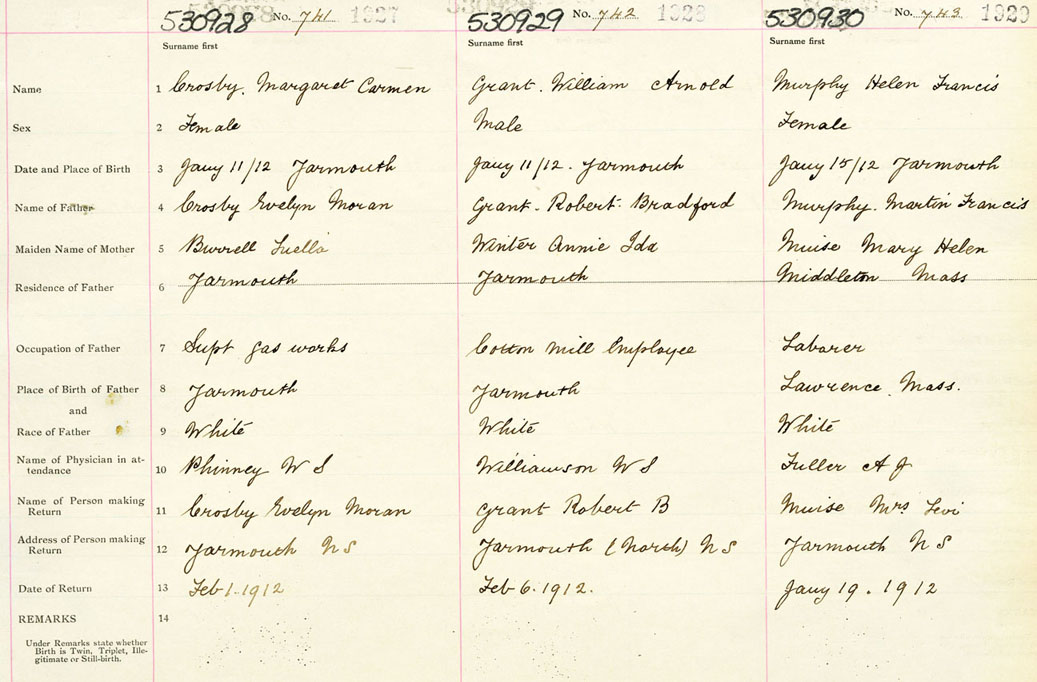 530928 No. 741 1927 530929 No. 742 1928 530930 No. 743 1929
Surname first Surname first Surname first
Name 1 Crosby. Margaret Carmen Grant. William Arnold Murphy Helen Francis
Sex 2 Female Male Female
Date and Place of Birth 3 Jany 11/12 Yarmouth Jany 11/12. Yarmouth Jany 15/12 Yarmouth
Name of Father 4 Crosby Evelyn Moran Grant. Robert. Bradford Murphy. Martin Francis
Maiden Name of Mother 5 Burrell Luella Winter Annie Ida Muise Mary Helen
Residence of Father 6 Yarmouth Yarmouth Middleton Mass
Occupation of Father 7 Supt gas works Cotton Mill Employee Labarer
Place of Birth of Father 8 Yarmouth Yarmouth Lawrence. Mass.
and
Race of Father 9 White White White
Name of Physician in at-
tendance 10 Phinney W S Williamson W S Fuller A J
Name of Person making
Return 11 Crosby Evelyn Moran Grant Robert B Muise Mrs Levi
Address of Person making
Return 12 Yarmouth N S Yarmouth (North) N S Yarmouth N S
Date of Return 13 Feb 1. 1912 Feb 6. 1912. Jany 19. 1912
REMARKS 14
Under Remarks state whether
Birth is Twin, Triplet, Ille-
gitimate or Still-birth.